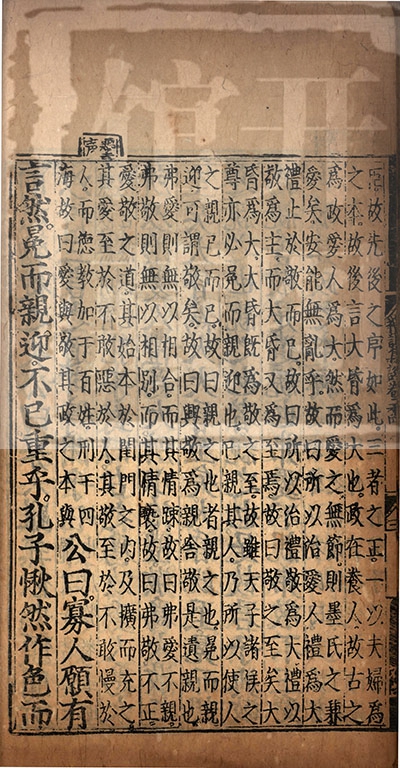 故先後之序如此三者之正一以夫婦為
之本故後言大昏為大也政在養人故古之
為政愛人為大然而愛之無節則墨氏之兼
愛矣安能無亂乎故曰所以治愛人禮為大
禮止於敬而已故曰所以治禮敬為大禮以
敬為主而大昏又為至焉故曰敬之至矣大
昏為大大昏既為敬之至故雖天子諸侯之
尊亦必冕而親迎也已親其人乃所以使人
之親已而已故曰親之也者親之也冕而親
迎可謂敬矣故曰興敬為親舍敬是遺親也
弗愛則無以相合而其情踈故曰弗愛不親
弗敬則無以相別而其情褻故曰弗敬不正
愛敬之道其始本於閨門之內及擴而充之
其愛至於不敢惡於人其敬至於不敢慢於
人而德教加于百姓刑于四
海故曰愛與敬其政之本與
公曰寡人願有
言然冕而親迎不已重乎孔子愀然作色而